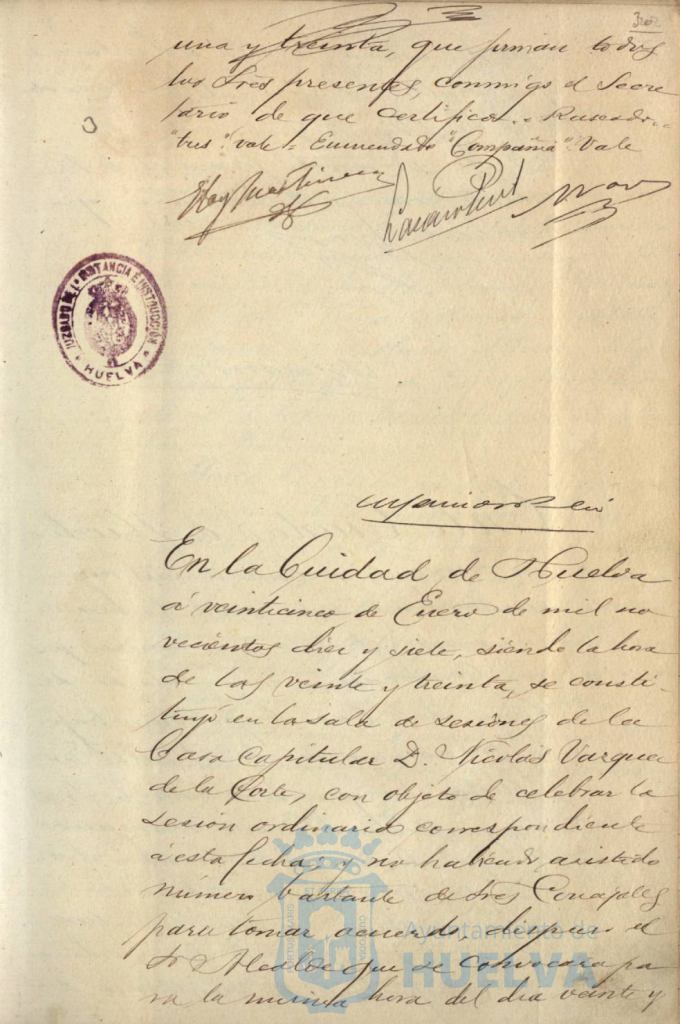 302
una y treinta, que firman todos
los Sres presentes, conmigo el Secre
tario de que certifico. = Raspado =
"tres" vale = Enmendado "Compañia". Vale
JUZGADO DE 1ª INSTANCIA E INSTRUCCIÓN
HUELVA
En la Ciudad de Huelva
á veinticinco de Enero de mil no
vecientos diez y siete, siendo la hora
de las veinte y treinta, se consti-
tuyó en la sala de sesiones de la
Casa Capitular D. Nicolás Vazquez
de la Corte, con objeto de celebrar la
sesión ordinaria correspondiente
á esta fecha; y no habiendo asistido
número bastante de Sres Concejales
para tomar acuerdo, dispuso el
Sr Alcalde que se convocara pa
ra la misma hora del dia veinte y
Ayuntamiento de
HUELVA